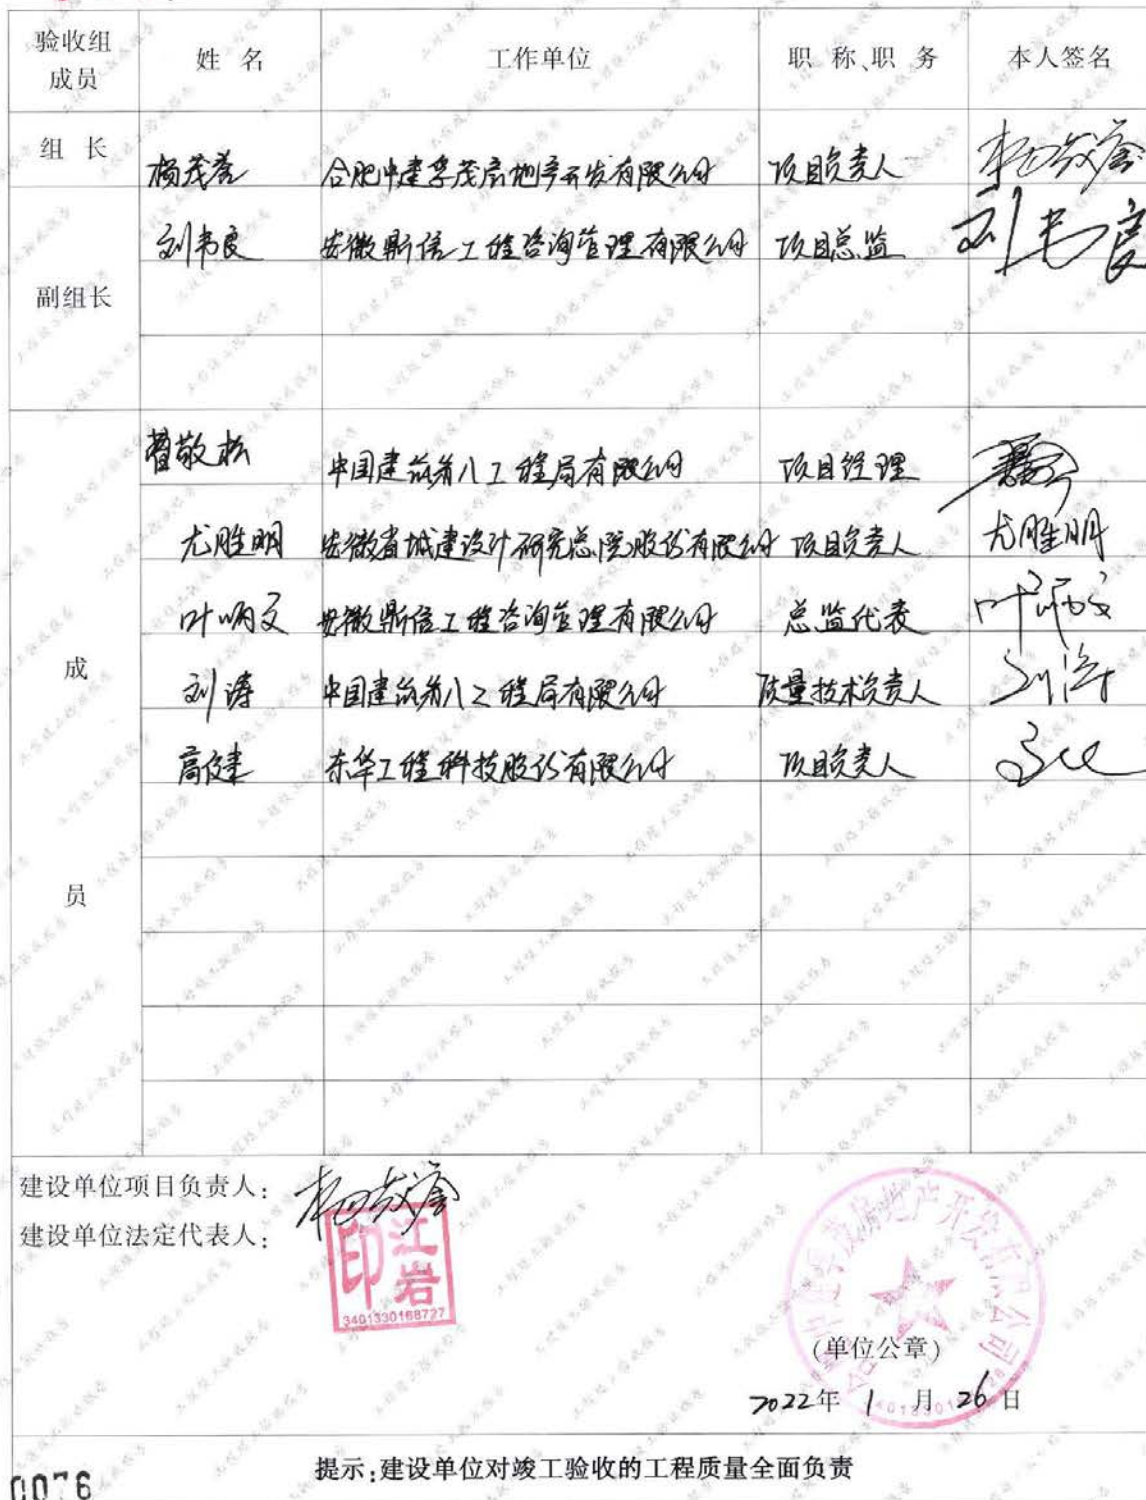 验收组成员 姓 名 工作单位 职 称、职 务 本人签名
组 长 杨茂 合肥中建孚茂房地产开发有限公司 项目负责人
副组长 刘韦良 安徽鼎信工程咨询管理有限公司 项目总监 刘韦良
成员
曹敬松 中国建筑第八工程局有限公司 项目经理
尤胜明 安徽省城建设计研究总院股份有限公司 项目负责人 尤胜明
叶炳文 安徽鼎信工程咨询管理有限公司 总监代表 叶炳文
刘涛 中国建筑第八工程局有限公司 质量技术负责人 刘涛
高俊 东华工程科技股份有限公司 项目负责人
建设单位项目负责人:
建设单位法定代表人:
江岩印
3401330168727
(单位公章)
2022年 1 月 26 日
提示:建设单位对竣工验收的工程质量全面负责
0076